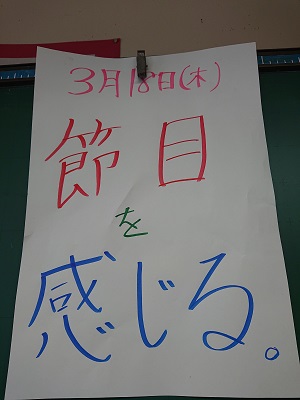 3月18日(木)
節目
を
感じる。